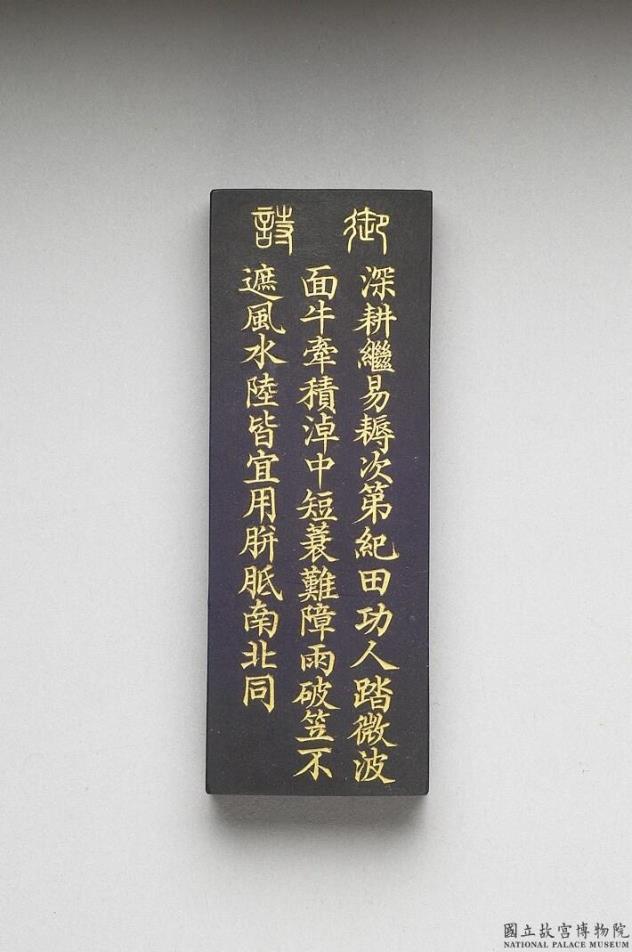 御詩
深耕繼易耨次第紀田功人踏微波
面牛牽積淖中短蓑難障雨破笠不
遮風水陸皆宜用胼胝南北同
國立故宮博物院
NATIONAL PALACE MUSEUM